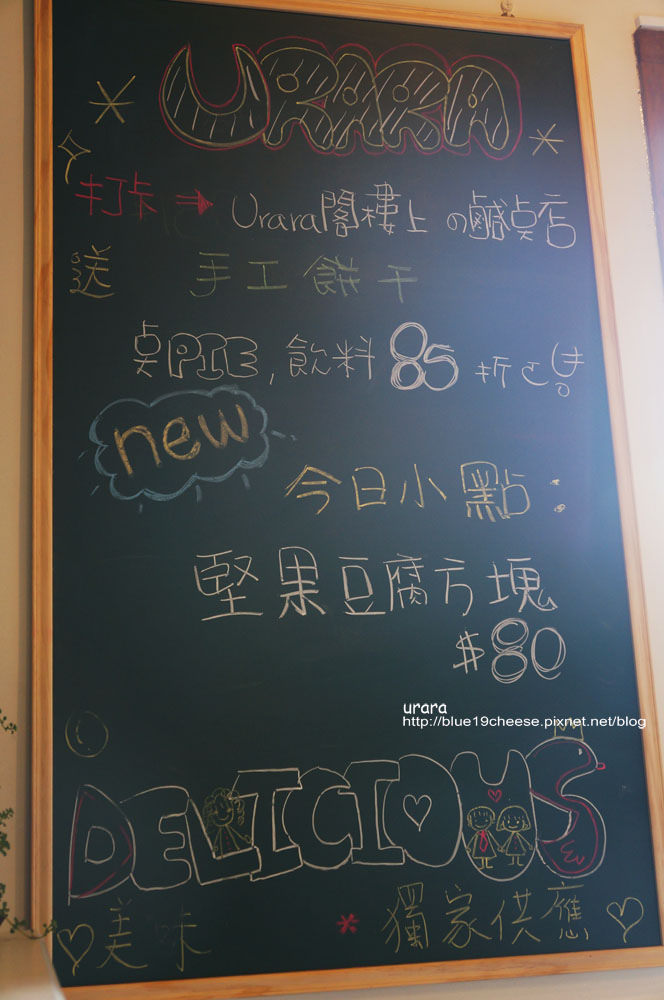 URARA
打卡 → Urara閣樓上の鹹点店
送 手工餅干
点PIE, 飲料 85 折已售
new
今日小點:
堅果豆腐方塊
$80
urara
http://blue19cheese.pixnet.net/blog
DELICIOUS
美味 * 獨家供應